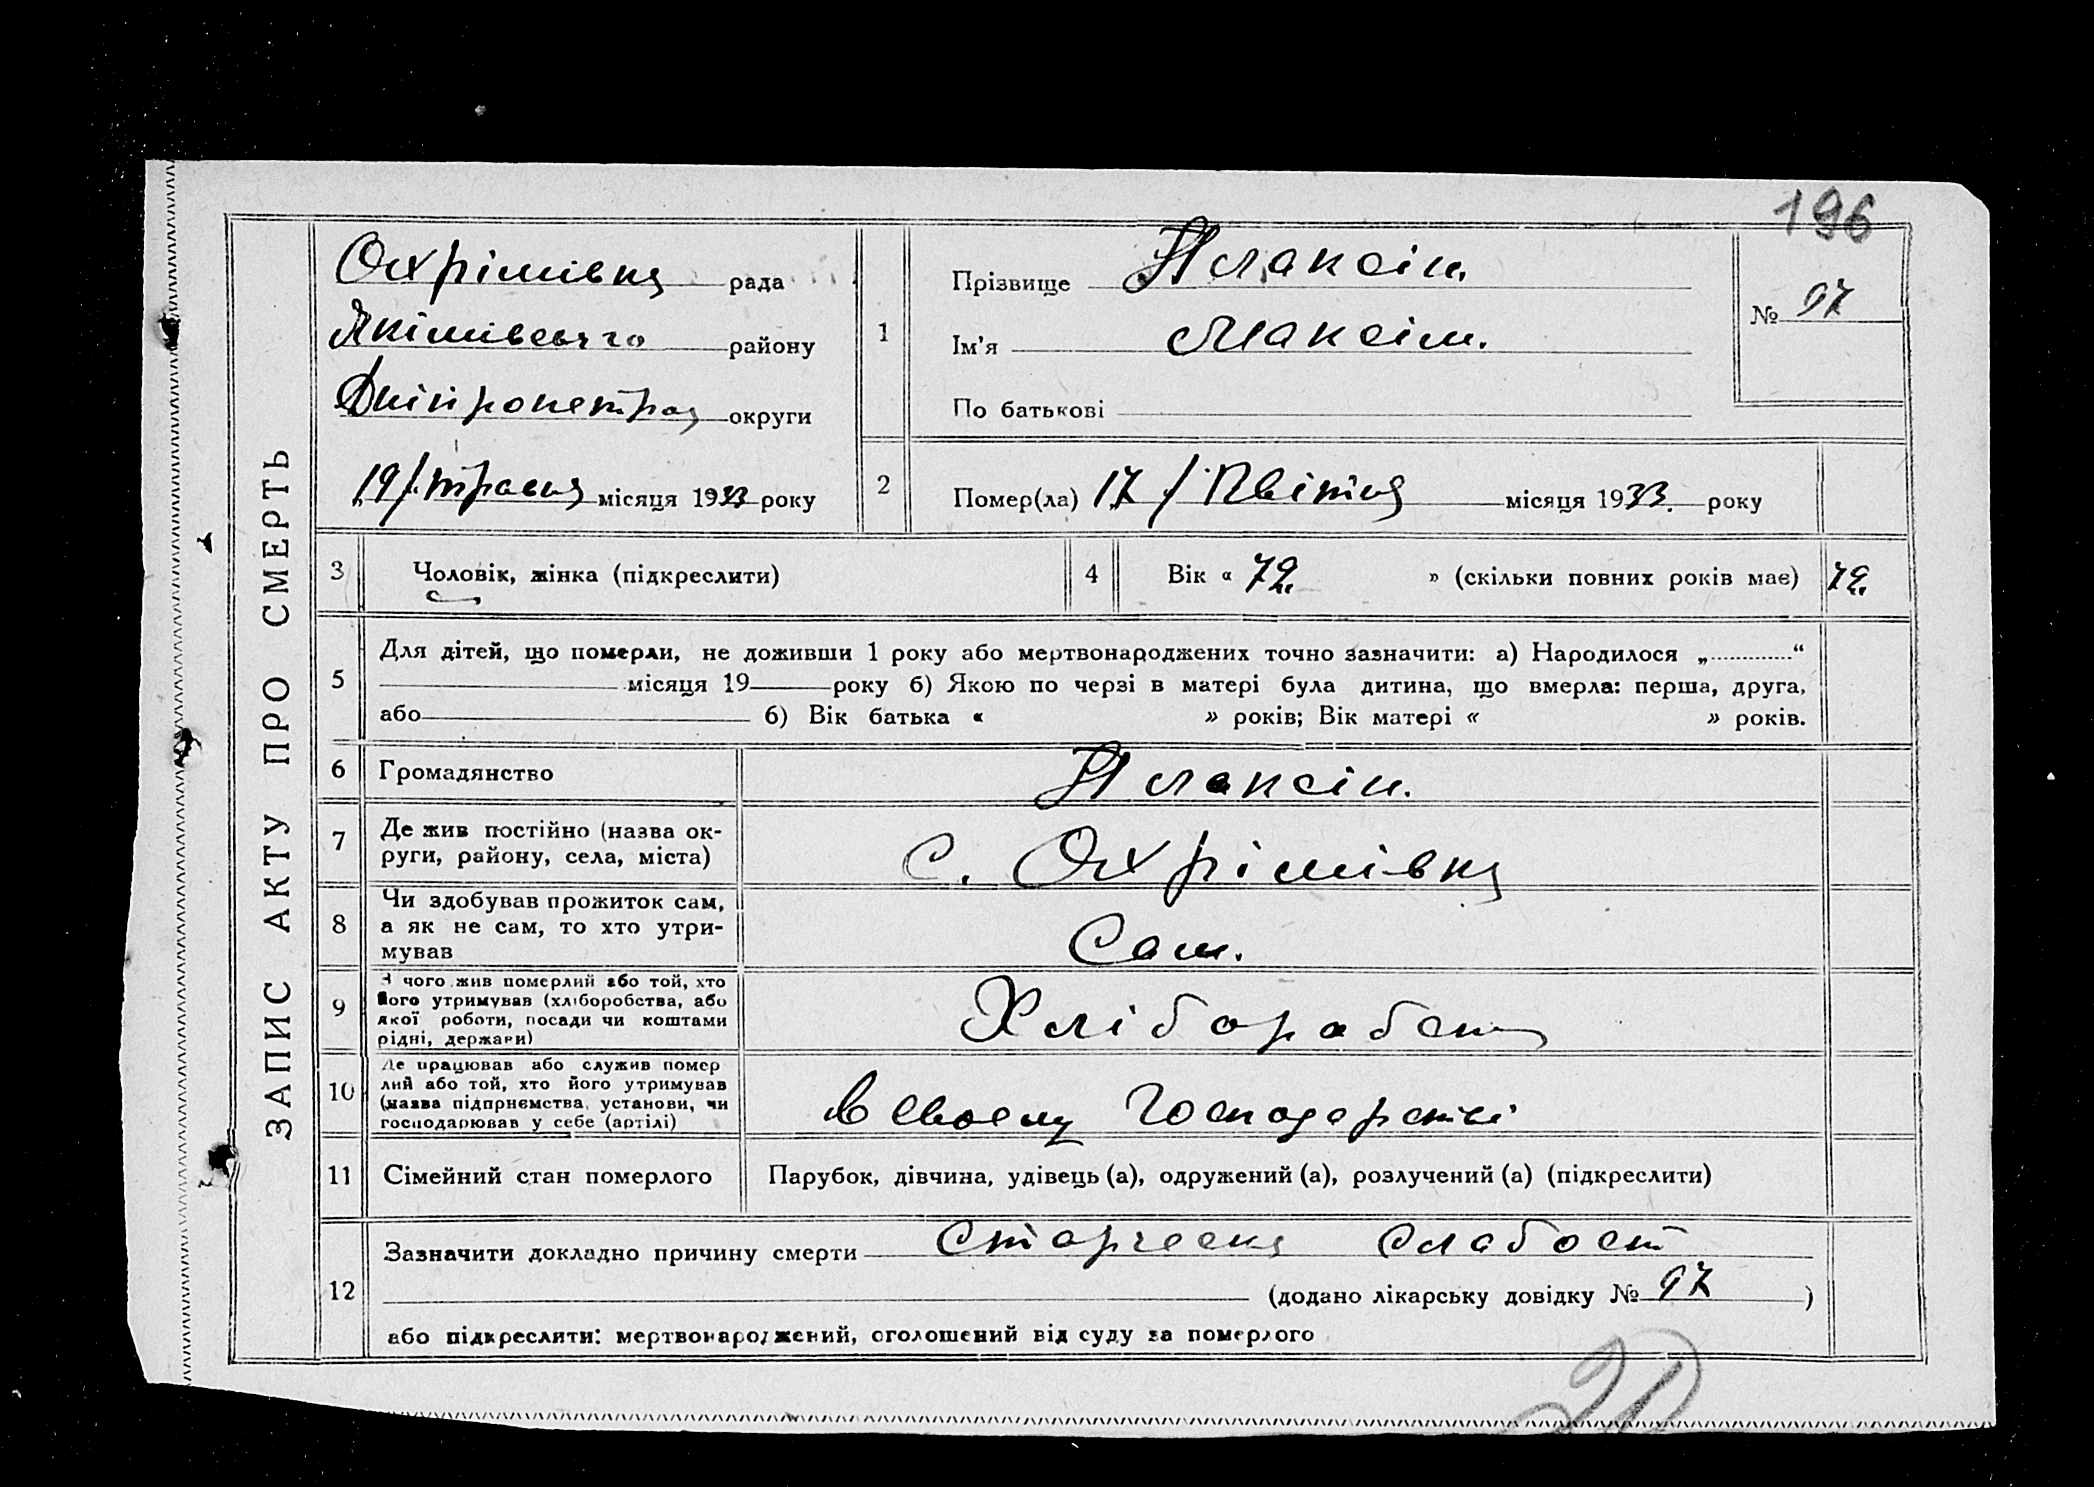 196
ЗАПИС АКТУ ПРО СМЕРТЬ
Охрімівка рада
Якімівського району
Дніпропетров округи
"19/травня місяця 1933 року
1
Прізвище
Ім'я Максім.
По батькові
№ 97
2
Помер(ла) "17 / Квітня місяця 1933. року
3
Чоловік, жінка (підкреслити)
4
Вік « 72. » (скільки повних років має) 72.
5
Для дітей, що померли, не доживши 1 року або мертвонароджених точно зазначити: а) Народилося „ “
місяця 19 року б) Якою по черзі в матері була дитина, що вмерла: перша, друга,
або б) Вік батька « » років; Вік матері « » років.
6
Громадянство
7
Де жив постійно (назва ок-
руги, району, села, міста)
с. Охрімівка
8
Чи здобував прожиток сам,
а як не сам, то хто утри-
мував
Сам.
9
З чого жив померлий або той, хто
його утримував (хліборобства, або
якої роботи, посади чи коштами
рідні, держави)
Хліборабство
10
Де працював або служив помер
лий або той, хто його утримував
(назва підприємства, установи, чи
господарював у себе (артілі)
в своему Господарстві
11
Сімейний стан померлого
Парубок, дівчина, удівець (а), одружений (а), розлучений (а) (підкреслити)
12
Зазначити докладно причину смерти Старческа слабост
(додано лікарську довідку № 97 )
або підкреслити: мертвонароджений, оголошений від суду за померлого